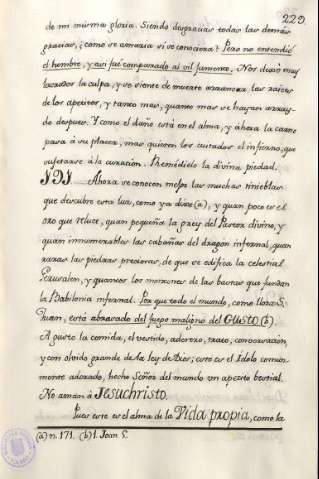 229.
de mi misma gloria. Siendo desgracias todas las demás
gracias, ¿como se amaria si se conociera? Pero no entendió
el hombre, y así fué comparado al vil jumento. Nos dexó muy
la culpa, y se siente de muerte arrancar las raices
de los apetitos, y tanto mas, quanto mas se hayan arraig-
do despues. Y como el daño está en el alma, y ahora la carne
pasa á su placer, mas quieren los cuitados el infierno, que
sujetarse á la curacion. Remédielo la divina piedad.
191. Ahora se conocen mejor las muchas tinieblas
que descubre esta luz, como ya dixe (a), y quan poco es el
oro que reluce, quan pequeña la grey del Pastor divino, y
quan innumerables las cabañas del dragon infernal, quan
raras las piedras preciosas, de que se edifica la celestial
Jerusalen, y quantos los montones de las bastas que fundan
la Babilonia infernal. Por que todo el mundo, como llora S.
Juan, está abrasado del fuego maligno del GUSTO (b).
A gusto la comida, el vestido, aderezo, trato, conversacion,
y con olvido grande de la ley de Dios; este es el Idolo comun-
mente adorado, hecho Señor del mundo un apetito bestial.
No aman á Jesuchristo.
Pues este es el alma de la Vida propia, como la
(a) n. 171. (b) I. Joan 5.